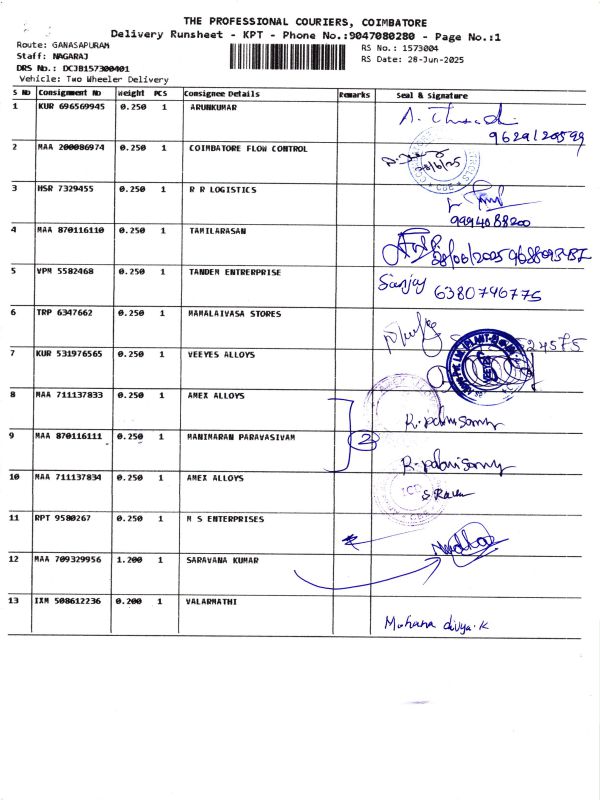 THE PROFESSIONAL COURIERS, COIMBATORE
Delivery Runsheet - KPT - Phone No.:9047080280 - Page No.:1
Route: GANASAPURAM
RS No.: 1573004
Staff: NAGARAJ
RS Date: 28-Jun-2025
DRS No.: DCJB157300401
Vehicle: Two Wheeler Delivery
S No Consignment No Weight PCS Consignee Details Remarks Seal & Signature
1 KUR 696569945 0.250 1 ARUNKUMAR
9629120599
2 MAA 200086974 0.250 1 COIMBATORE FLOW CONTROL
28/6/25
3 HSR 7329455 0.250 1 R R LOGISTICS
9994088200
4 MAA 870116110 0.250 1 TAMILARASAN
28/06/2025
5 VPM 5582468 0.250 1 TANDEM ENTRERPRISE
Sanjay 6380746775
6 TRP 6347662 0.250 1 MAMALAIVASA STORES
24575
7 KUR 531976565 0.250 1 VEEYES ALLOYS
8 MAA 711137833 0.250 1 AMEX ALLOYS
R. palanisamy
9 MAA 870116111 0.250 1 MANIMARAN PARAVASIVAM 2
R. palanisamy
10 MAA 711137834 0.250 1 AMEX ALLOYS
11 RPT 9580267 0.250 1 M S ENTERPRISES
12 MAA 709329956 1.200 1 SARAVANA KUMAR
13 IXM 508612236 0.200 1 VALARMATHI
Mohana divya. K